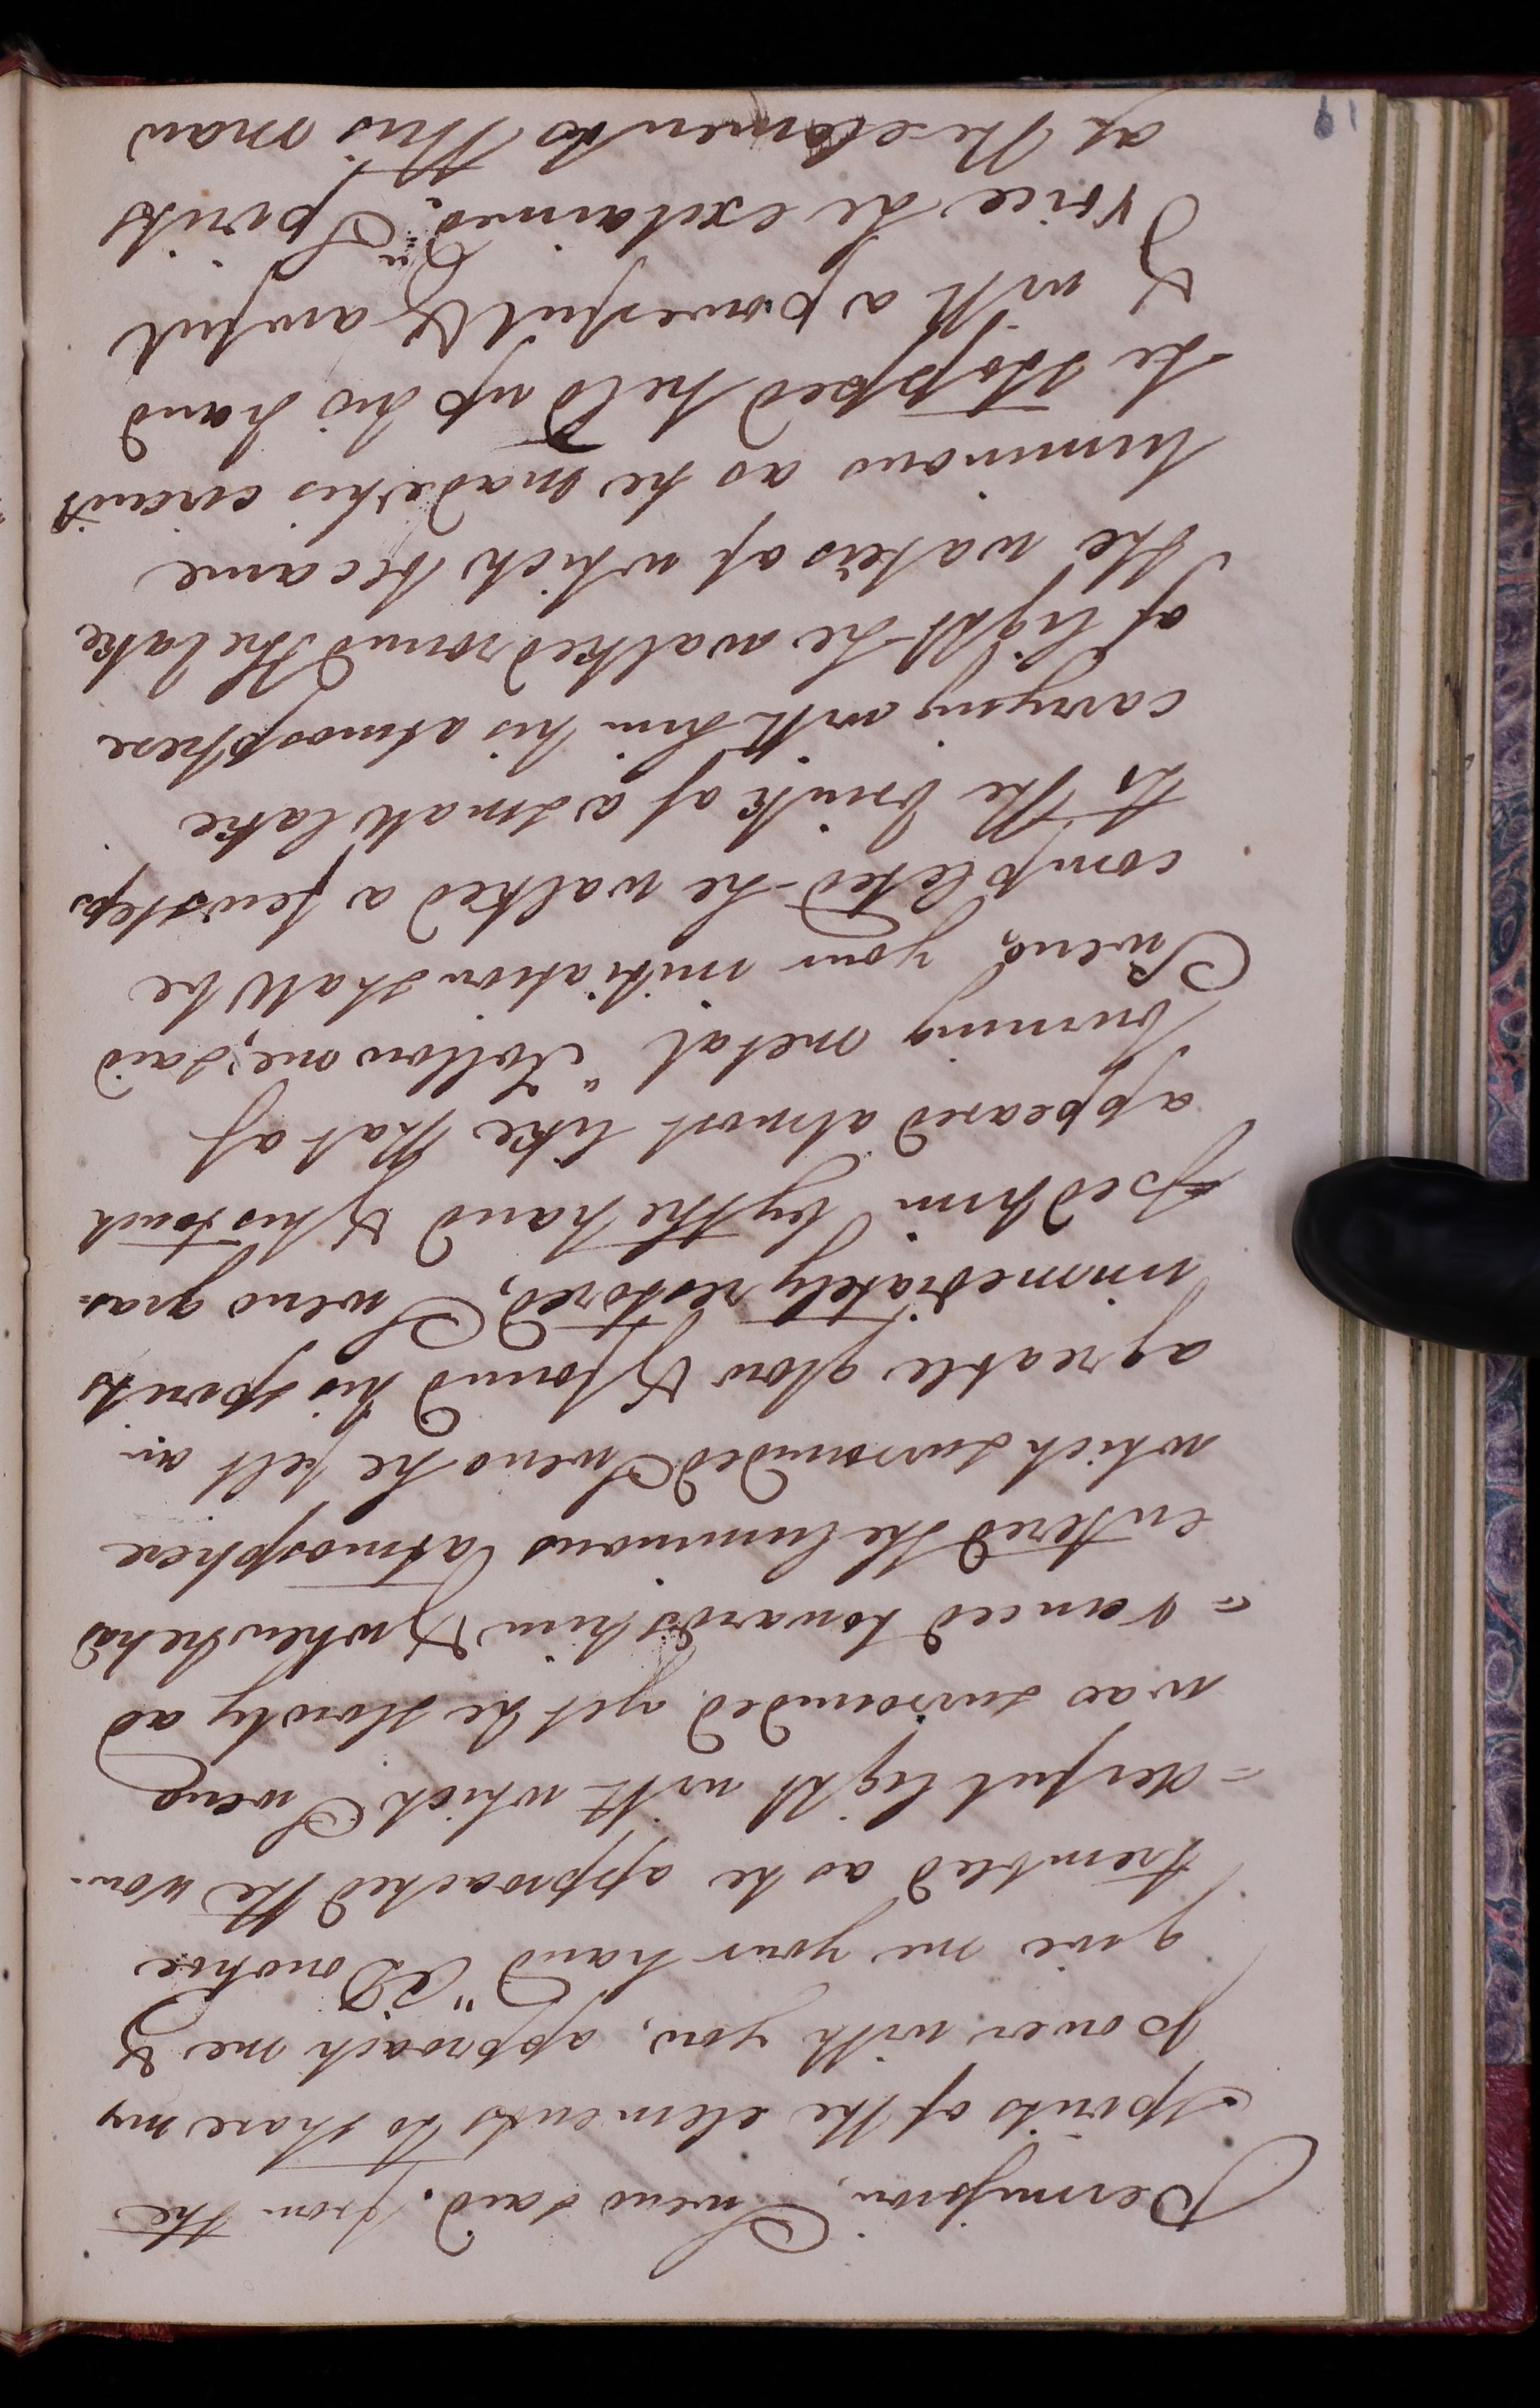 Permission, Sweno said. from the
spirits of the elements to share my
power with you, approach me &
give me your hand" O Donohoe
trembled as he approached the won-
=derful light with which Sweno
was surrounded yet he slowly ad
=vanced towards him & when he had
entered the luminous atmosphere
which surrounded Sweno he felt an
agreable glow & found his spirits
immediately restored, Sweno gras=
ped him by the hand & his touch
appeared almost like that of
burning metal "Follow me, said
Sweno, your initiation shall be
completed - he walked a few steps
to the brink of a small lake
carrying with him his atmosphere
of light - he walked round the lake
the waters of which became
luminous as he made his circuit
he stopped held up his hand
& with a powerful & awful
voice he exclaimed. "Spirits
of the elements this man
19